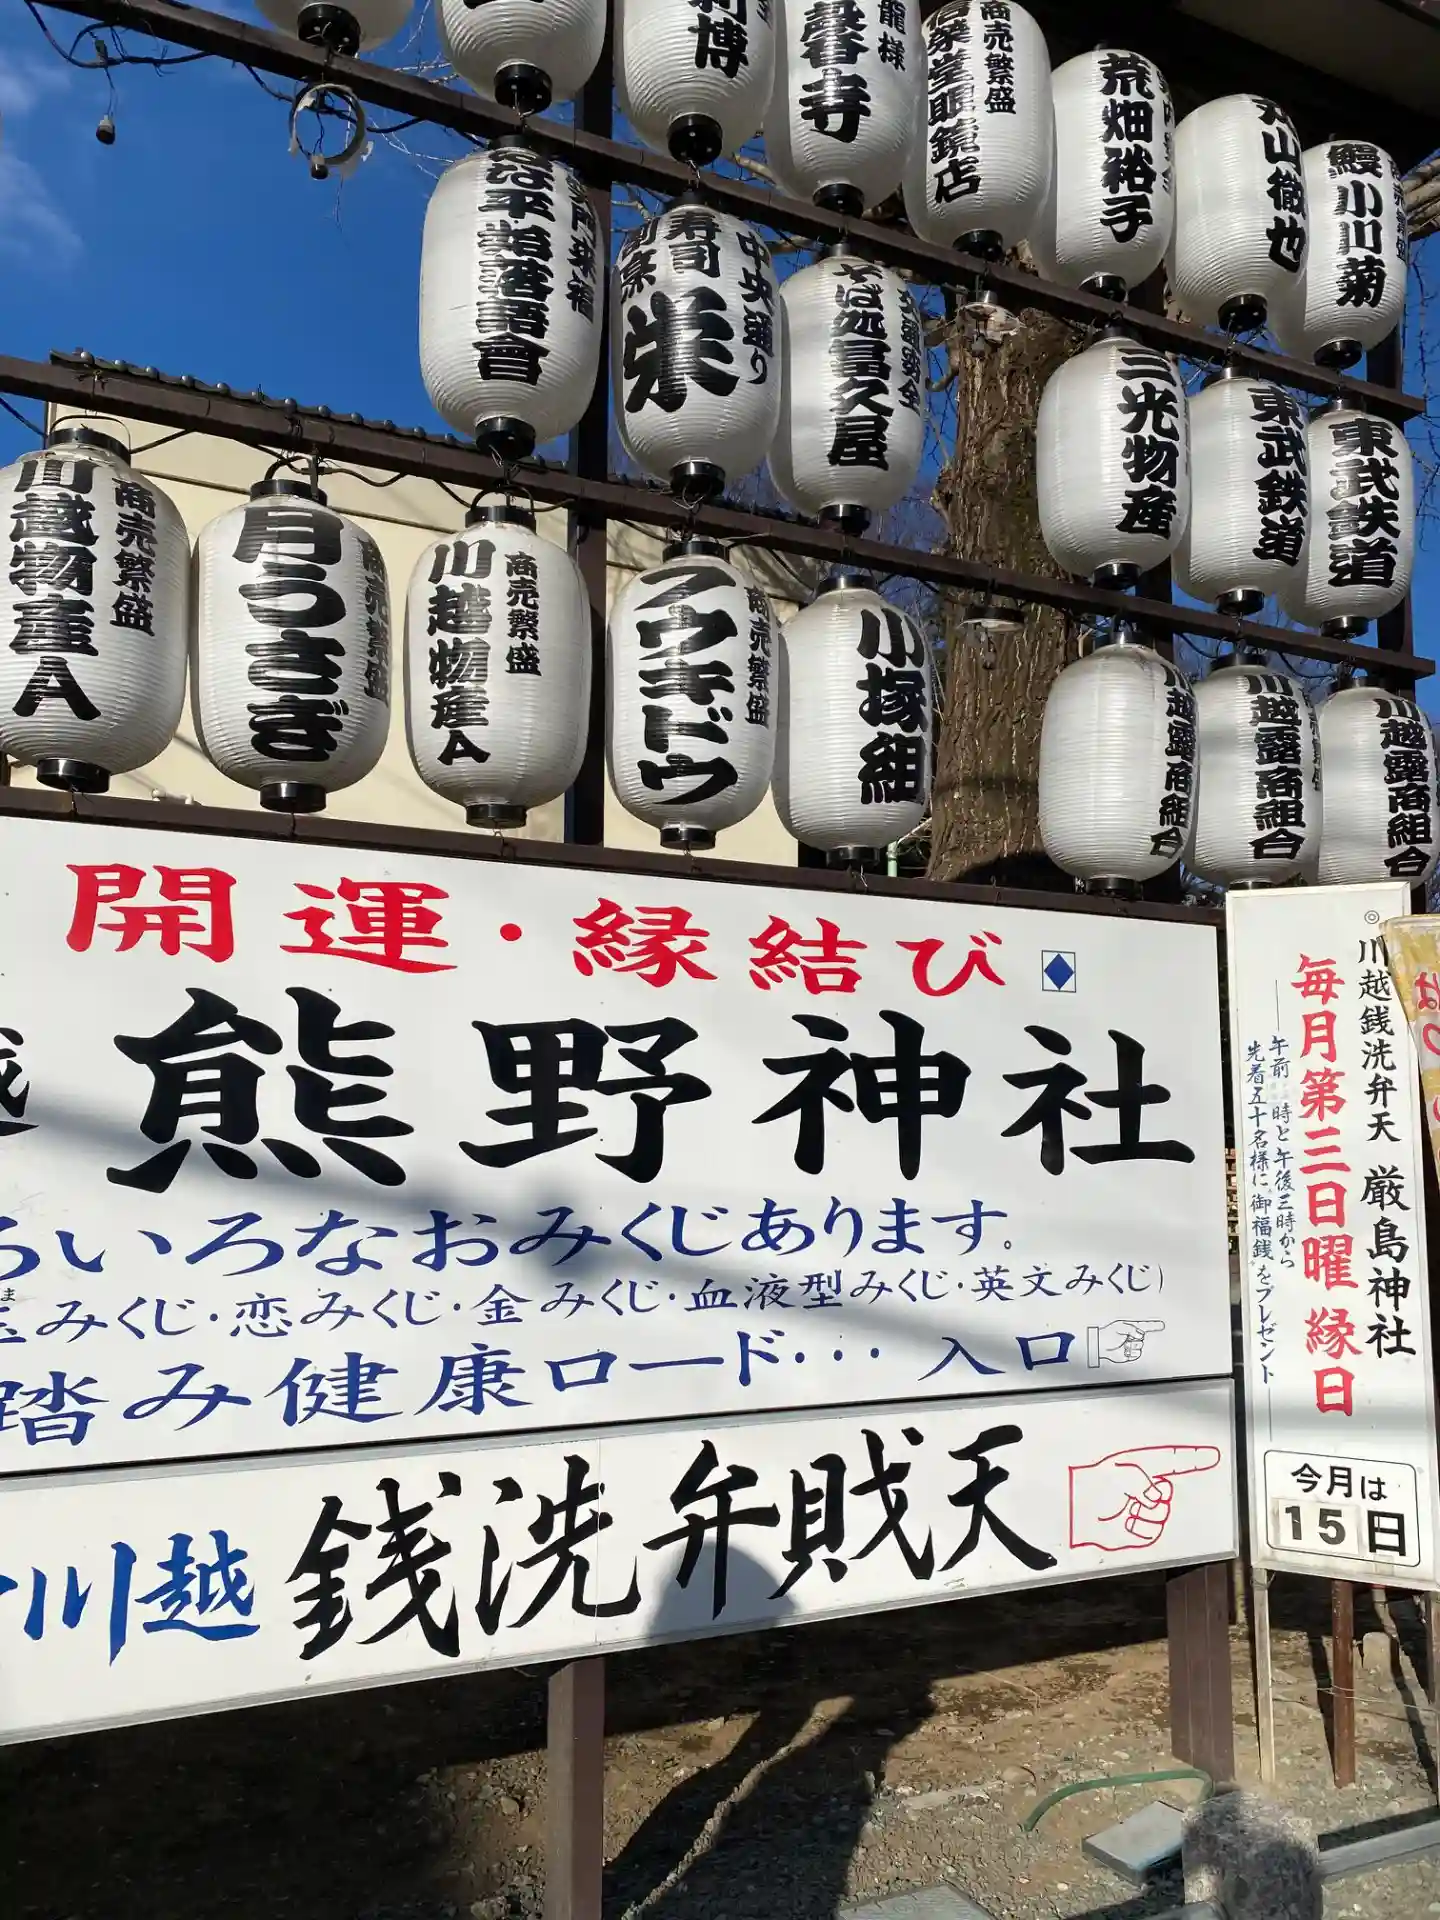 博
龍様
商売繁盛
眼鏡店
荒畑裕子
山徹也
鰻小川菊
落語會
中央通り
寿司
栄
交通安全
そば処冨久屋
三光物産
東武鉄道
東武鉄道
商売繁盛
川越物産A
商売繁盛
月うさぎ
商売繁盛
川越物産A
商売繁盛
フウキドウ
小塚組
川越露商組合
川越露商組合
川越露商組合
開運・縁結び
越 熊野神社
ろいろなおみくじあります。
玉みくじ・恋みくじ・金みくじ・血液型みくじ・英文みくじ)
踏み健康ロード・・・入口
川越 銭洗弁財天
◎川越銭洗弁天 厳島神社
毎月第三日曜 縁日
午前 時と午後三時から
先着五十名様に"御福銭"をプレゼント
今月は
15日